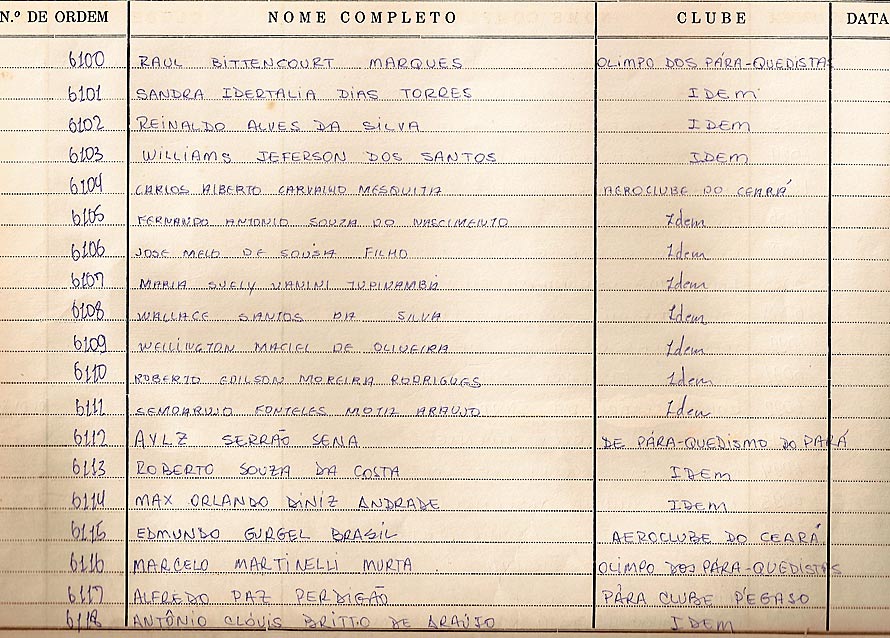 N.º DE ORDEM NOME COMPLETO CLUBE DATA
6100 RAUL BITTENCOURT MARQUES OLIMPO DOS PÁRA-QUEDISTAS
6101 SANDRA IDERTALIA DIAS TORRES IDEM
6102 REINALDO ALVES DA SILVA IDEM
6103 WILLIAMS JEFERSON DOS SANTOS IDEM
6104 CARLOS ALBERTO CARVALHO MESQUITA AEROCLUBE DO CEARÁ
6105 FERNANDO ANTONIO SOUZA DO NASCIMENTO Idem
6106 JOSE MELO DE SOUSA FILHO Idem
6107 MARIA SUELY VANINI TUPINAMBÁ Idem
6108 WALLACE SANTOS DA SILVA Idem
6109 WELLINGTON MACIEL DE OLIVEIRA Idem
6110 ROBERTO EDILSON MOREIRA RODRIGUES Idem
6111 FONTELES ARAUJO Idem
6112 AYLZ SERRÃO SENA DE PÁRA-QUEDISMO DO PARÁ
6113 ROBERTO SOUZA DA COSTA IDEM
6114 MAX ORLANDO DINIZ ANDRADE IDEM
6115 EDMUNDO GURGEL BRASIL AEROCLUBE DO CEARÁ
6116 MARCELO MARTINELLI MURTA OLIMPO DOS PÁRA-QUEDISTAS
6117 ALFREDO PAZ PERDIGÃO PÁRA CLUBE PÉGASO
6118 ANTÔNIO CLÓVIS BRITTO DE ARAÚJO IDEM